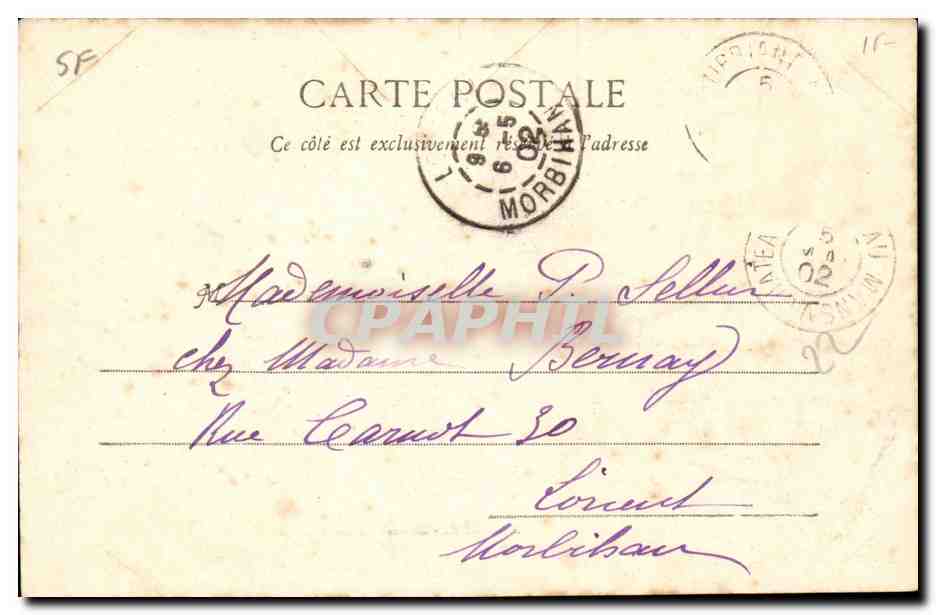 5F
1F
CARTE POSTALE
Ce côté est exclusivement réservé à l'adresse
MORBIHAN
6 -5
02
Mademoiselle P. Sellur
CPAPHIL
chez Madame Bernay
Rue Carnot 30
Lorient
Morbihan
02
22